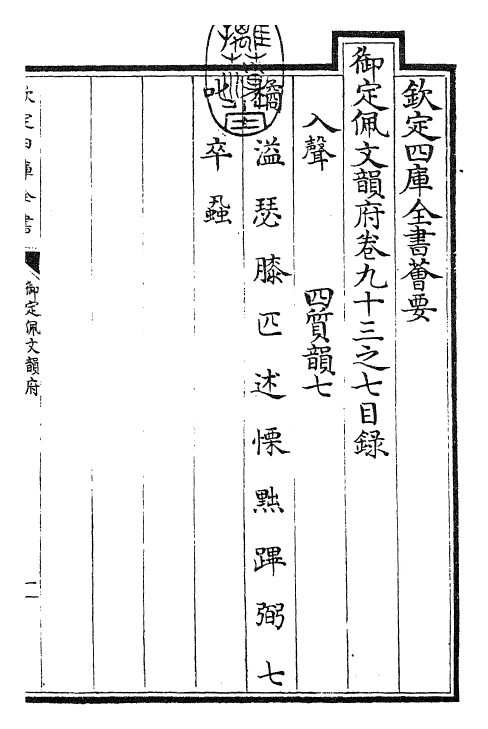 欽定四庫全書薈要
御定佩文韻府卷九十三之七目録
入聲 四質韻七
橘 溢 瑟 膝 匹 述 慄 黜 蹕 弼 七
叱 卒 蝨
欽定四庫全書
御定佩文韻府